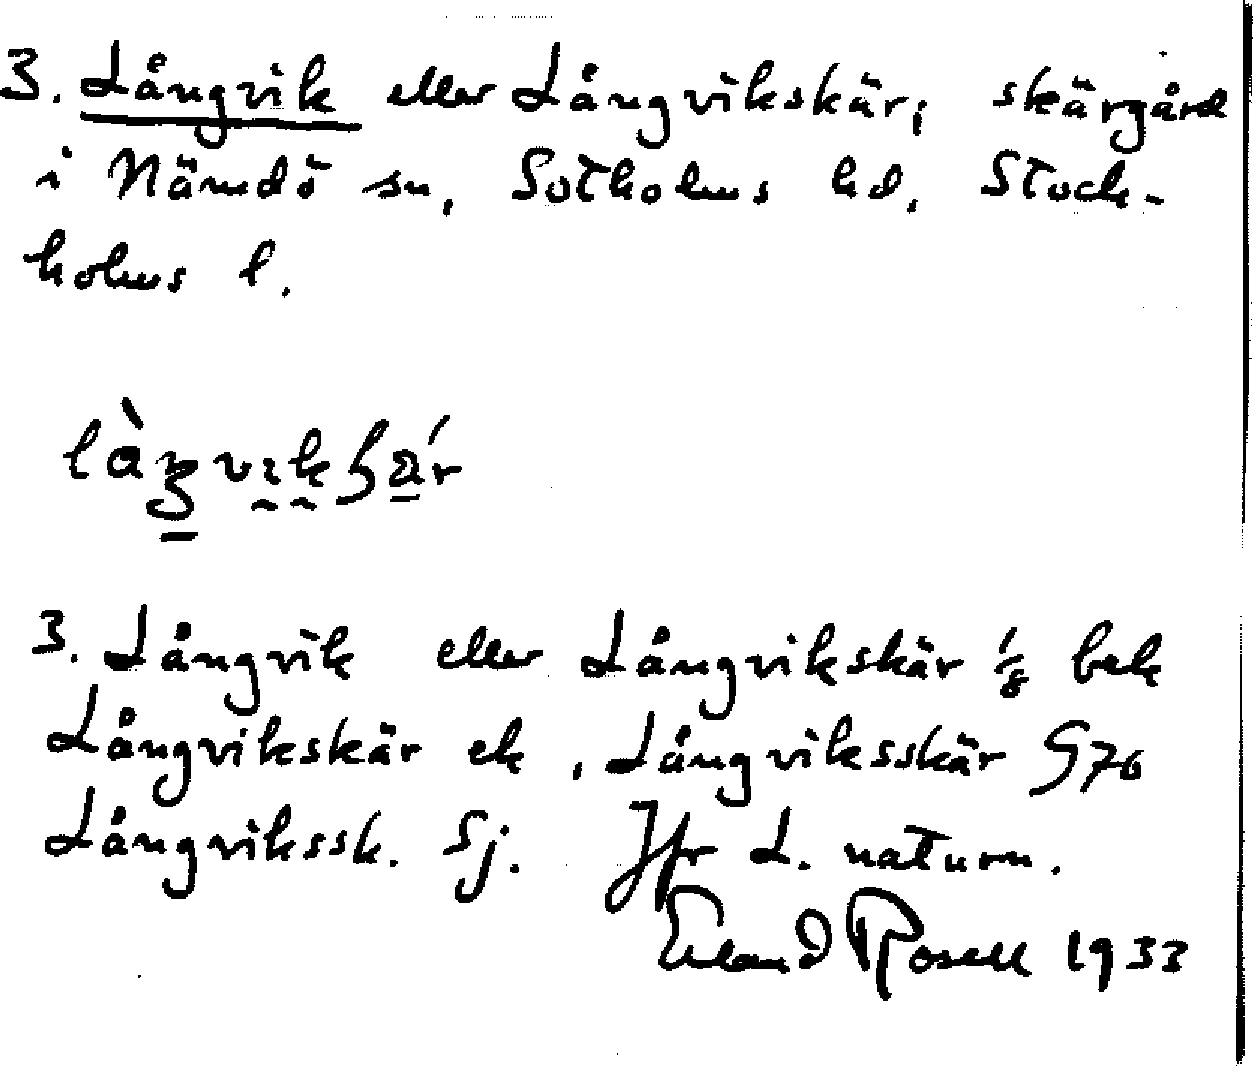 3. Långvik eller Långvikskär, skärgård
i Nämdö sn, Sotholms hd, Stock-
holms l.
3. Långvik eller Långvikskär bek
Långvikskär ek, Långviksskär G70
Långvikssk. Sj. Jfr L. naturn.
Erland Rosell 1933